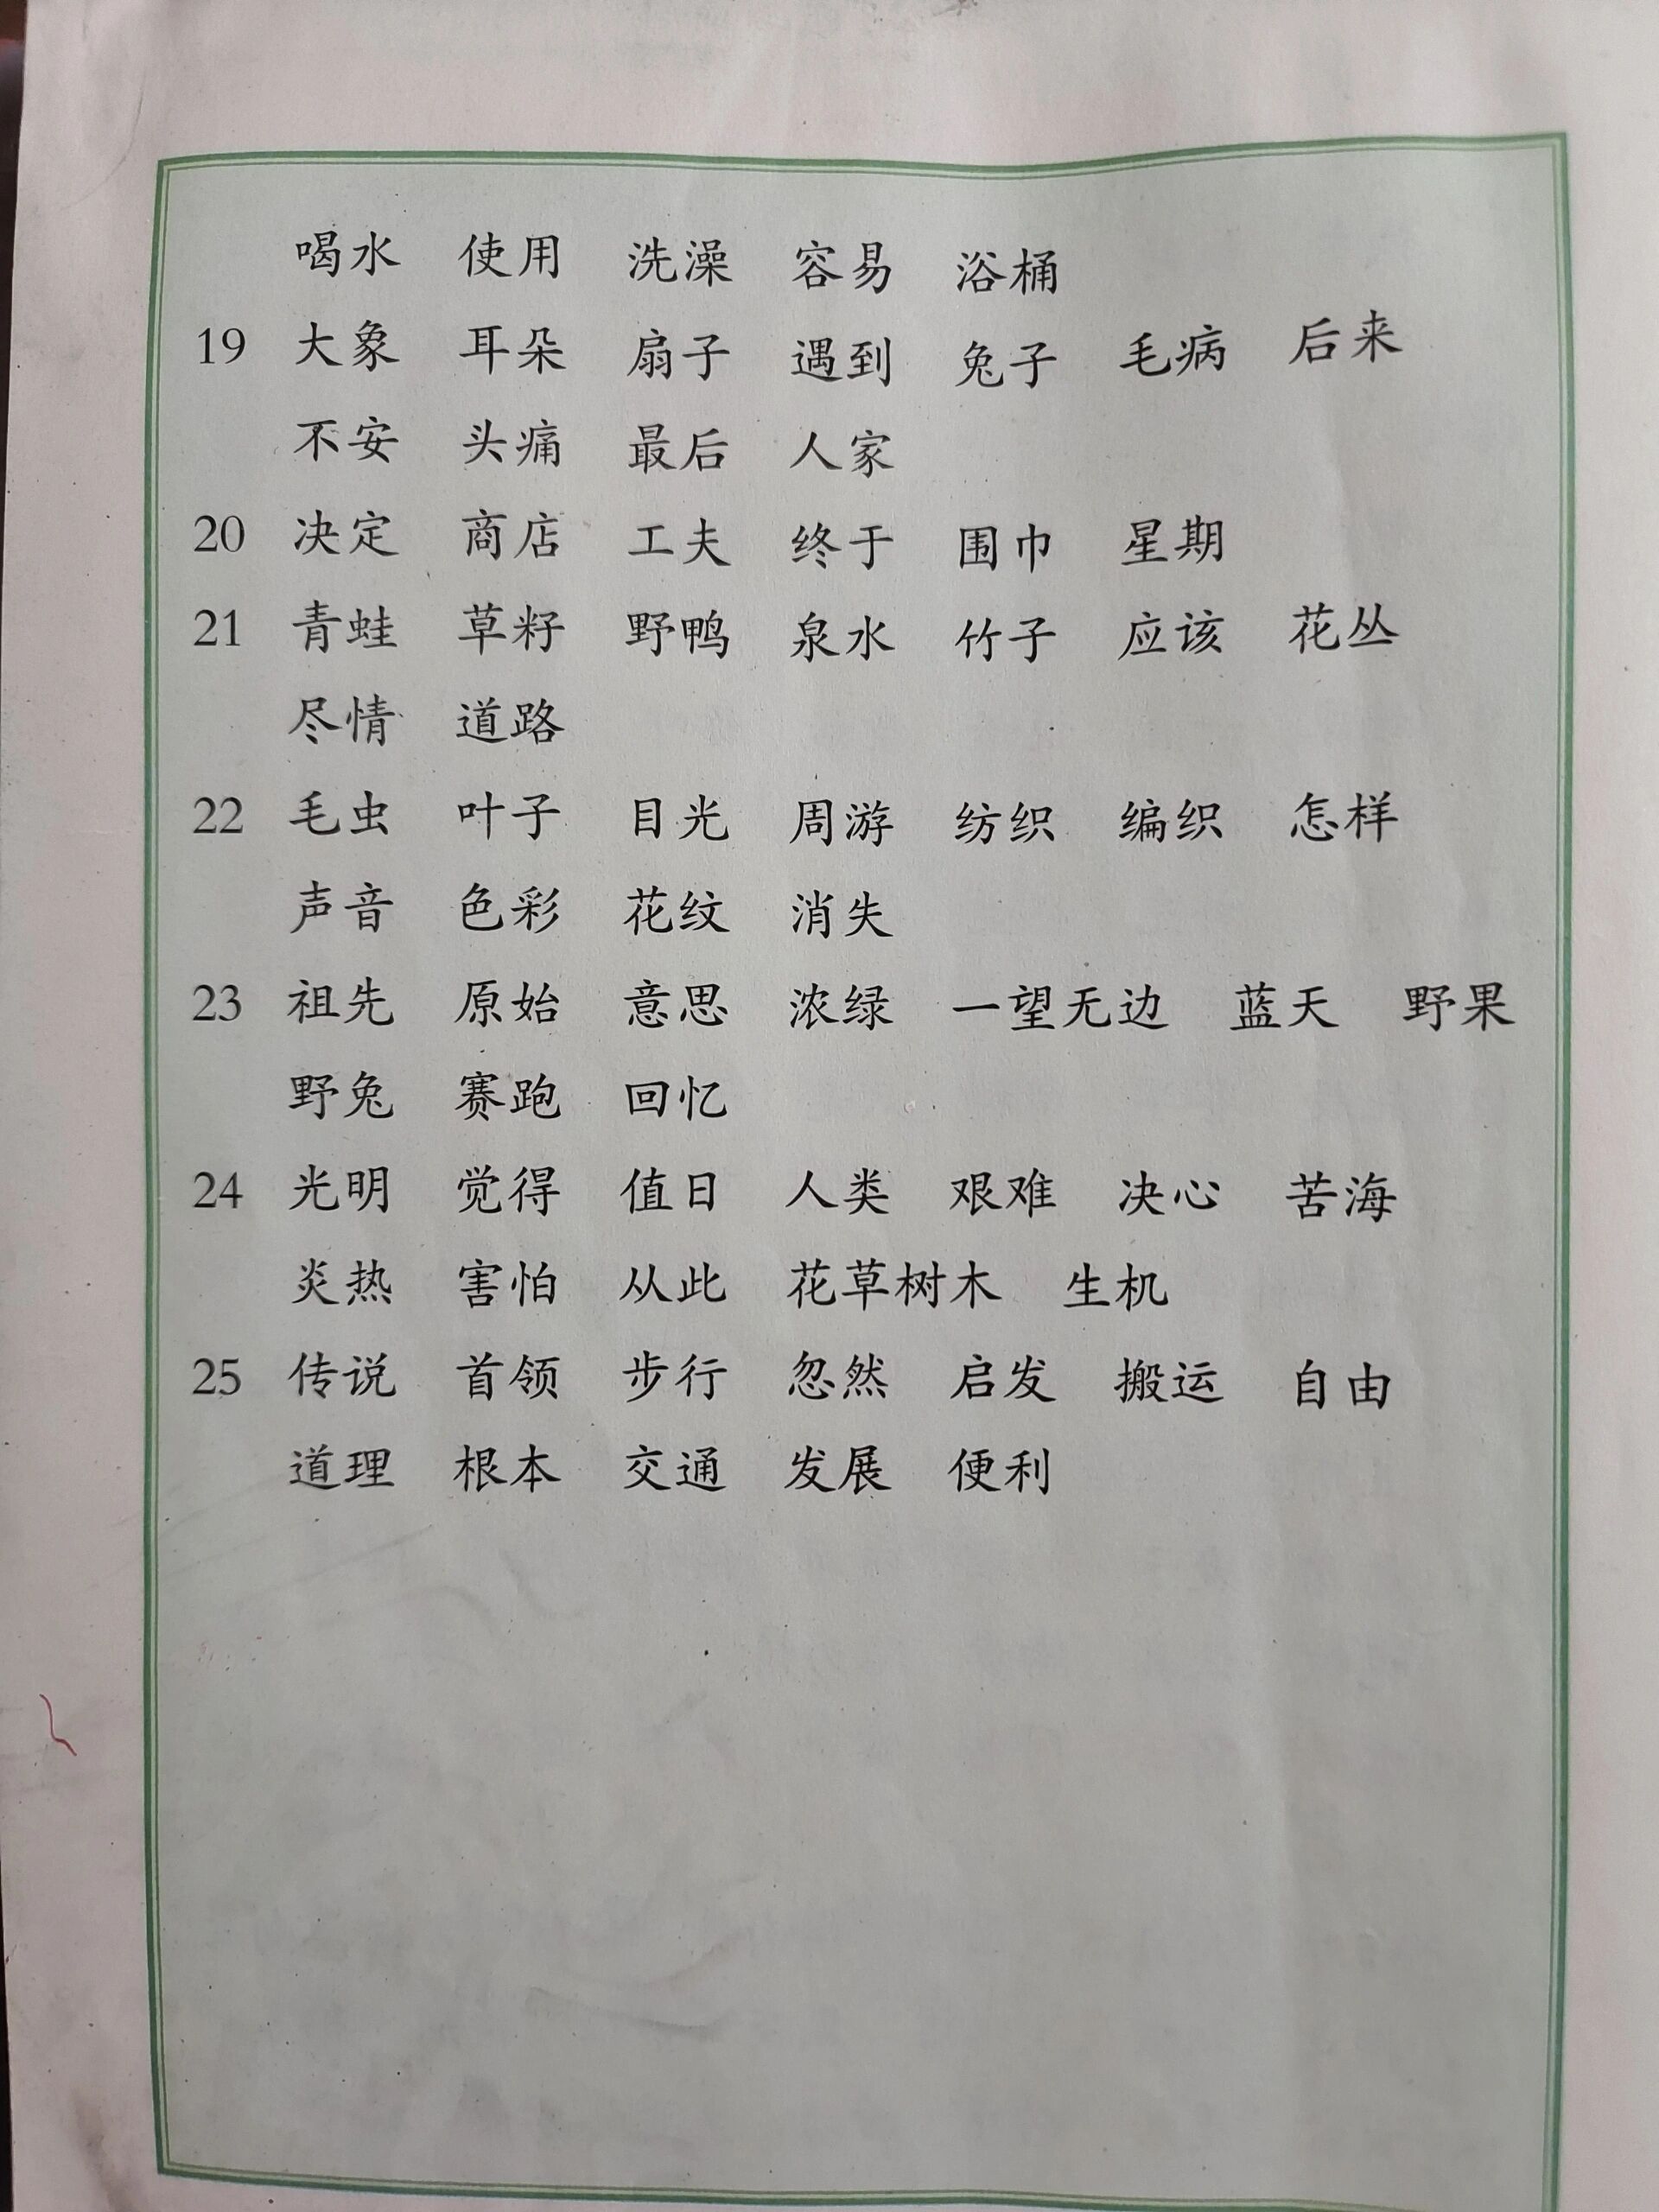 喝水 使用 洗澡 容易 浴桶
19 大象 耳朵 扇子 遇到 兔子 毛病 后来
不安 头痛 最后 人家
20 决定 商店 工夫 终于 围巾 星期
21 青蛙 草籽 野鸭 泉水 竹子 应该 花丛
尽情 道路
22 毛虫 叶子 目光 周游 纺织 编织 怎样
声音 色彩 花纹 消失
23 祖先 原始 意思 浓绿 一望无边 蓝天 野果
野兔 赛跑 回忆
24 光明 觉得 值日 人类 艰难 决心 苦海
炎热 害怕 从此 花草树木 生机
25 传说 首领 步行 忽然 启发 搬运 自由
道理 根本 交通 发展 便利